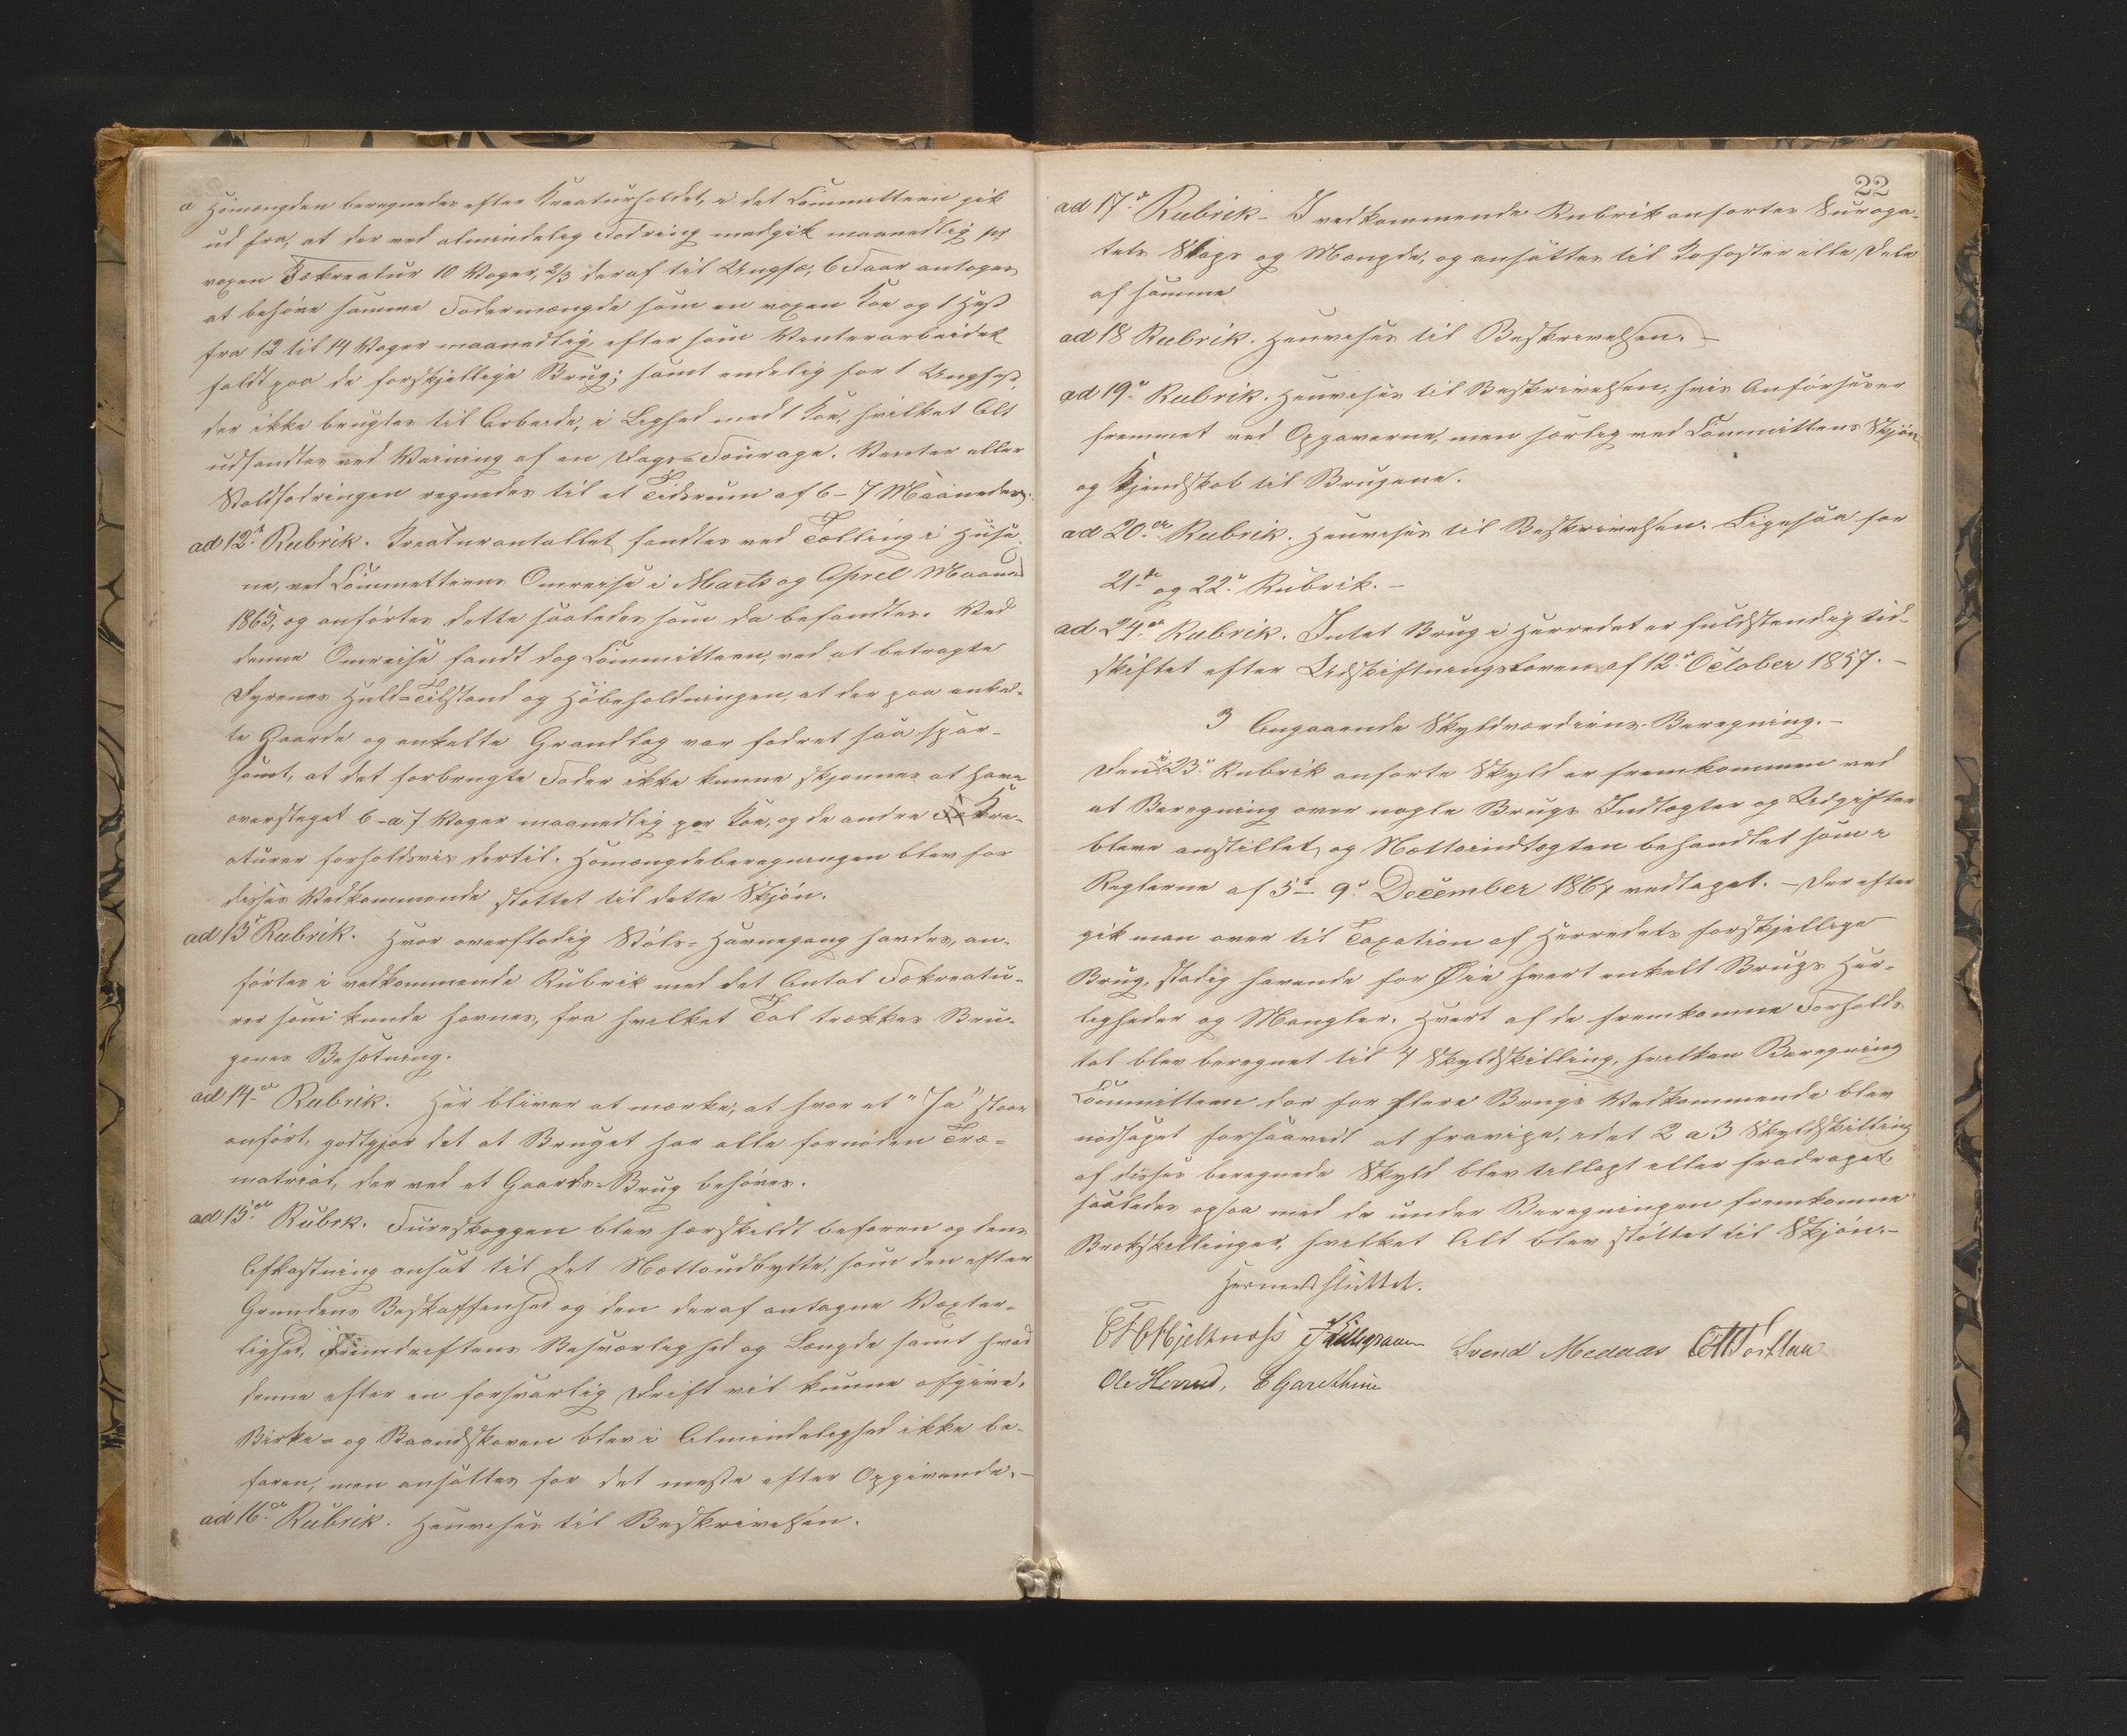 a Hömængden beregnedes efter Kreaturholdet, i det Committeen gik
ud fra, at der ved almindelig Fodring medgik maanedlig pr
voxen Fækreatur 10 Voger, 2/3 deraf til Ungfæ, 6 Faar antoges
at behöve samme Fodermængde som en voxen Koe og 1 Hest
fra 12 til 14 Voger maanedlig, efter som Vinterarbeidet
faldt paa de forskjellige Brug; samt endelig for 1 Unghest,
der ikke brugtes til Arbeide, i Lighed med 1 Koe, hvilket Alt
udfandtes ved Veining af en Dags-Fourage. Vinter eller
Staldfodringen regnedes til et Tidsrum af 6-7 Maaneder.
ad 12te Rubrik. Kreaturantallet fandtes ved Tælling i Huse
ne, ved Committeens Omreise i Marts og April Maaned
1865, og anførtes dette saaledes som da befandtes. Ved
denne Omreise fandt dog Committeen, ved at betragte
Dyrenes Huld-Tilstand og Höbeholdningen, at der paa enkel-
te Gaarde og enkelte Grandlag var fodret saa spar-
somt, at det forbrugte Foder ikke kunne skjønnes at have
oversteget 6 a 7 Voger maanedlig per Koe, og de andre Kre-
aturer forholdsvis dertil. Hömængdeberegningen blev for
disses Vedkommende støttet til dette Skjön.
ad 13de Rubrik. Hvor overflødig Støls-Havnegang havdes, an-
förtes i vedkommende Rubrik med det Antal Fækreatu-
rer som kunde havnes, fra hvilket Tal trækkes Bru-
genes Besætning.
ad 14de Rubrik. Her bliver at mærke, at hvor et "Ja" staar
anfört, godtgjør det at Bruget har alle fornøden Træ-
matrial, der ved et Gaards-Brug behöves.
ad 15de Rubrk. Fureskoggen blev særskildt befaren og dens
Afkastning ansat til det Nettoudbytte, som den efter
Grundens Beskaffenhed og den deraf antagne Voxter-
lighed, Fremdriftens Besværlighed og Længde samt hvad
denne efter en forsvarlig Drift vil kunne afgive.
Birke- og Baandskoven blev i Almindelighed ikke be-
faren, men ansattes for det meste efter Opgivende.-
ad 16de Rubrik. Henvises til Beskrivelsen.
22
ad 17de Rubrik- I vedkommende Rubrik anførtes Suroga-
tets Slags og Mængde, og ansattes til Kofoster eller Dele
af samme
ad 18 Rubrik. Henvises til Beskrivelsen.-
ad 19de Rubrik. Henvises til Beskrivelsen, hvis Anførsler
fremmet ved Opgaverne, men særlig ved Committeens Skjön
og Kjendskab til Brugene.
ad 20de Rubrik. Henvises til Beskrivelsen. Ligesaa for
21de og 22de Rubrik.-
ad 24de Rubrik. Intet Brug i Herredet er fuldstendig ud-
skiftet efter Udskiftningsloven af 12te October 1857.-
3 Angaaende Skyldværdiens-Beregning.-
Den i 23de Rubrik anførte Skyld er fremkommen ved
at Beregning over nogle Brugs Indtægter og Udgifter
bleve anstillet, og Nettoindtægten behandlet som i
Reglerne af 5te 9de December 1864 vedtaget.- Derefter
gik man over til Taxation af Herredets forskjellige
Brug, stadig havende for Øie hvert enkelt Brugs Her-
ligheder og Mangler. Hvert af de fremkomne Forholds
tal blev beregnet til 4 Skyldskilling, hvilken Beregning
Committeen dog for flere Brugs Vedkommende blev
nødsaget forsaavidt at fravige, idet 2 a 3 Skyldskilling
af disses beregnede Skyld blev tillagt eller fradraget
saaledes ogsaa med de under Beregningen fremkomne
Brøkskillinger, hvilket Alt blev støttet til Skjön.-
Hermed sluttet.
Svend Medaas
Ole Herred, Garethun